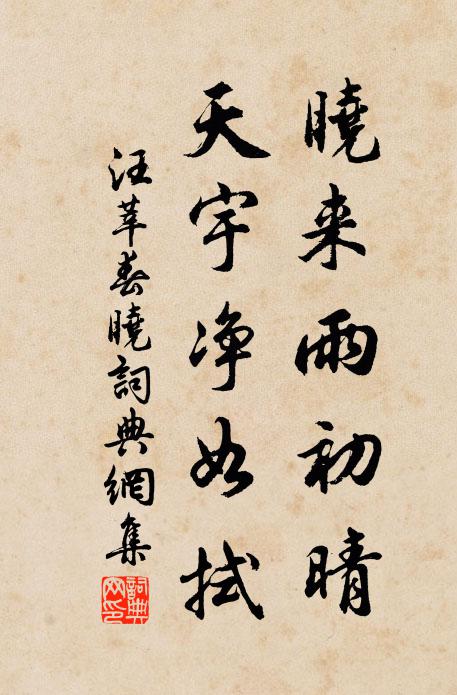 曉来雨初晴
天宇净如拭
汪莘春曉詞典網集
詞典網印